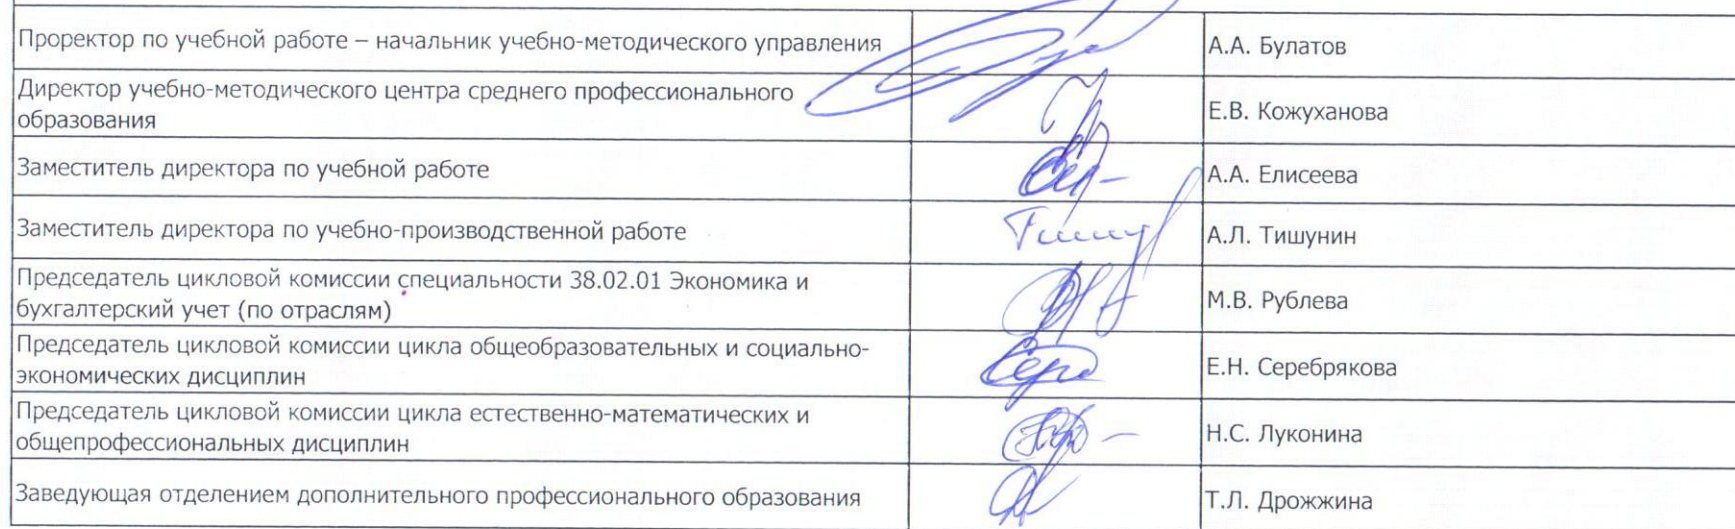 Проректор по учебной работе – начальник учебно-методического управления А.А. Булатов
Директор учебно-методического центра среднего профессионального
образования Е.В. Кожуханова
Заместитель директора по учебной работе А.А. Елисеева
Заместитель директора по учебно-производственной работе А.Л. Тишунин
Председатель цикловой комиссии специальности 38.02.01 Экономика и
бухгалтерский учет (по отраслям) М.В. Рублева
Председатель цикловой комиссии цикла общеобразовательных и социально-
экономических дисциплин Е.Н. Серебрякова
Председатель цикловой комиссии цикла естественно-математических и
общепрофессиональных дисциплин Н.С. Луконина
Заведующая отделением дополнительного профессионального образования Т.Л. Дрожжина